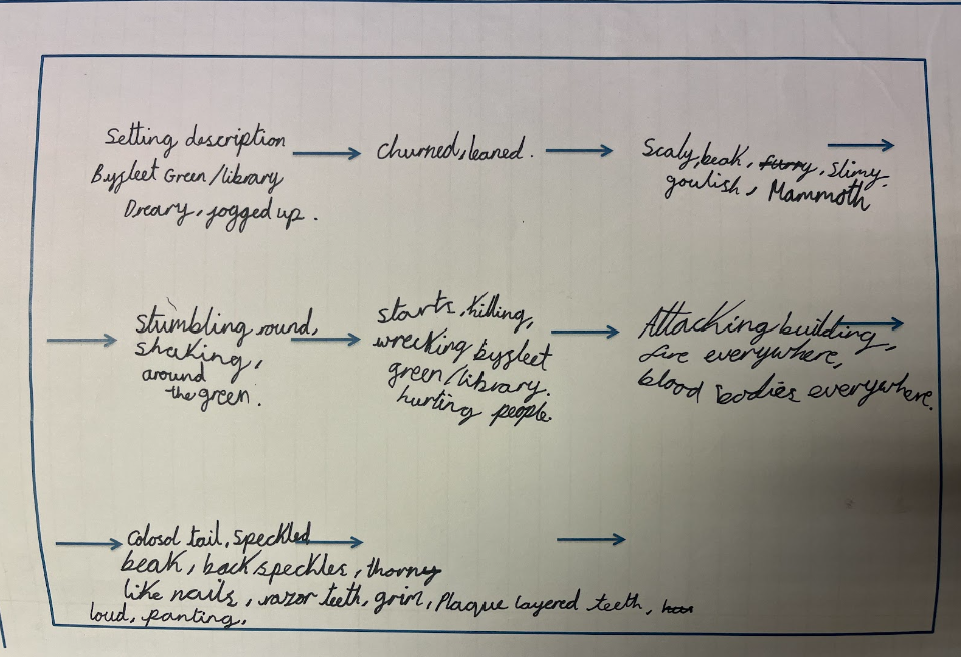 Setting description
Byfleet Green/library
Dreary, fogged up.
churned, leaned.
Scaly, beak, furry, slimy.
goulish, Mammoth
Stumbling round,
shaking,
around
the green.
starts, killing,
wrecking byfleet
green/library.
hurting people.
Attacking building,
fire everywhere,
blood bodies everywhere.
colosol tail, speckled
beak, back speckles, thorny
like nails, razor teeth, grim, Plaque layered teeth,
loud, panting,